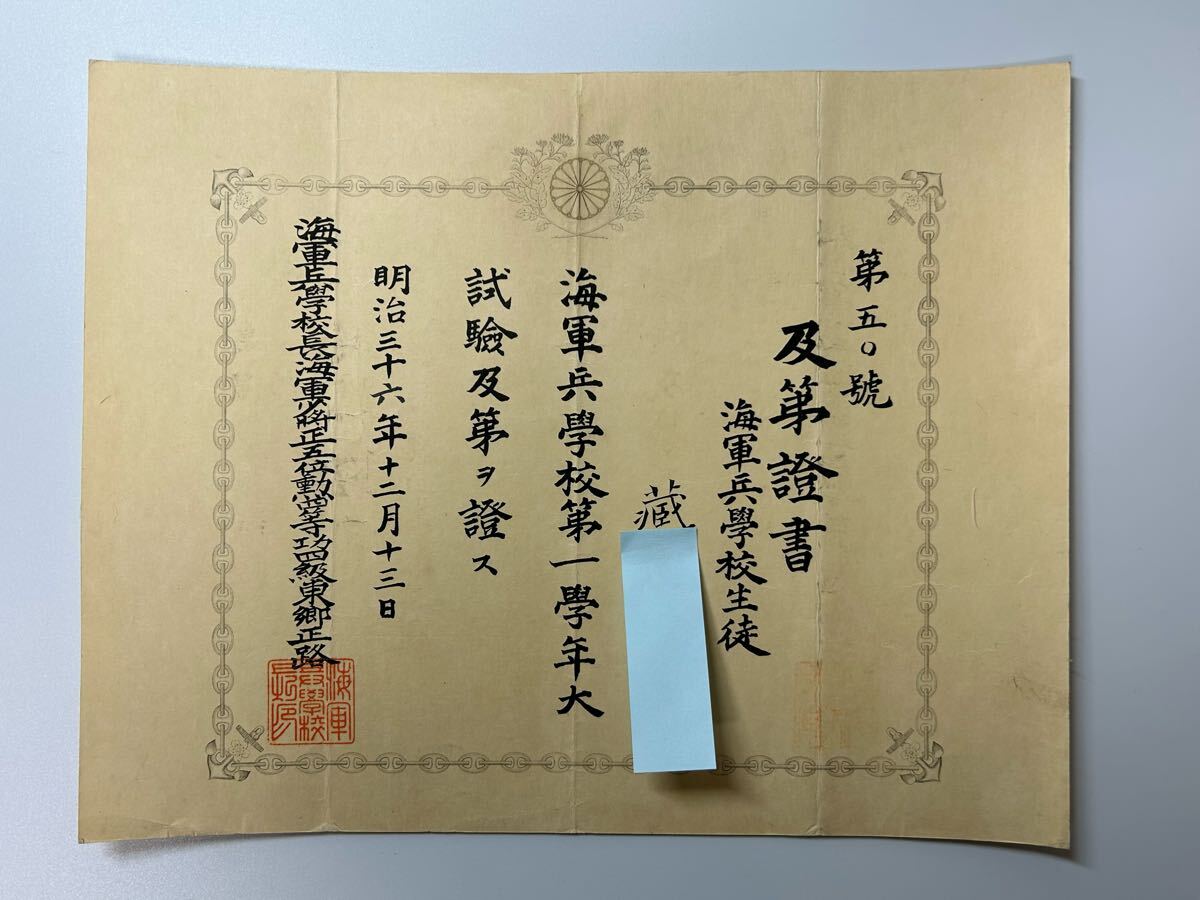 第五〇號
及第證書
海軍兵學校生徒
藏
海軍兵學校第一學年大
試驗及第ヲ證ス
明治三十六年十二月十三日
海軍兵學校長海軍少將正五位勳三等功四級東郷正路
海軍
兵學校
長印